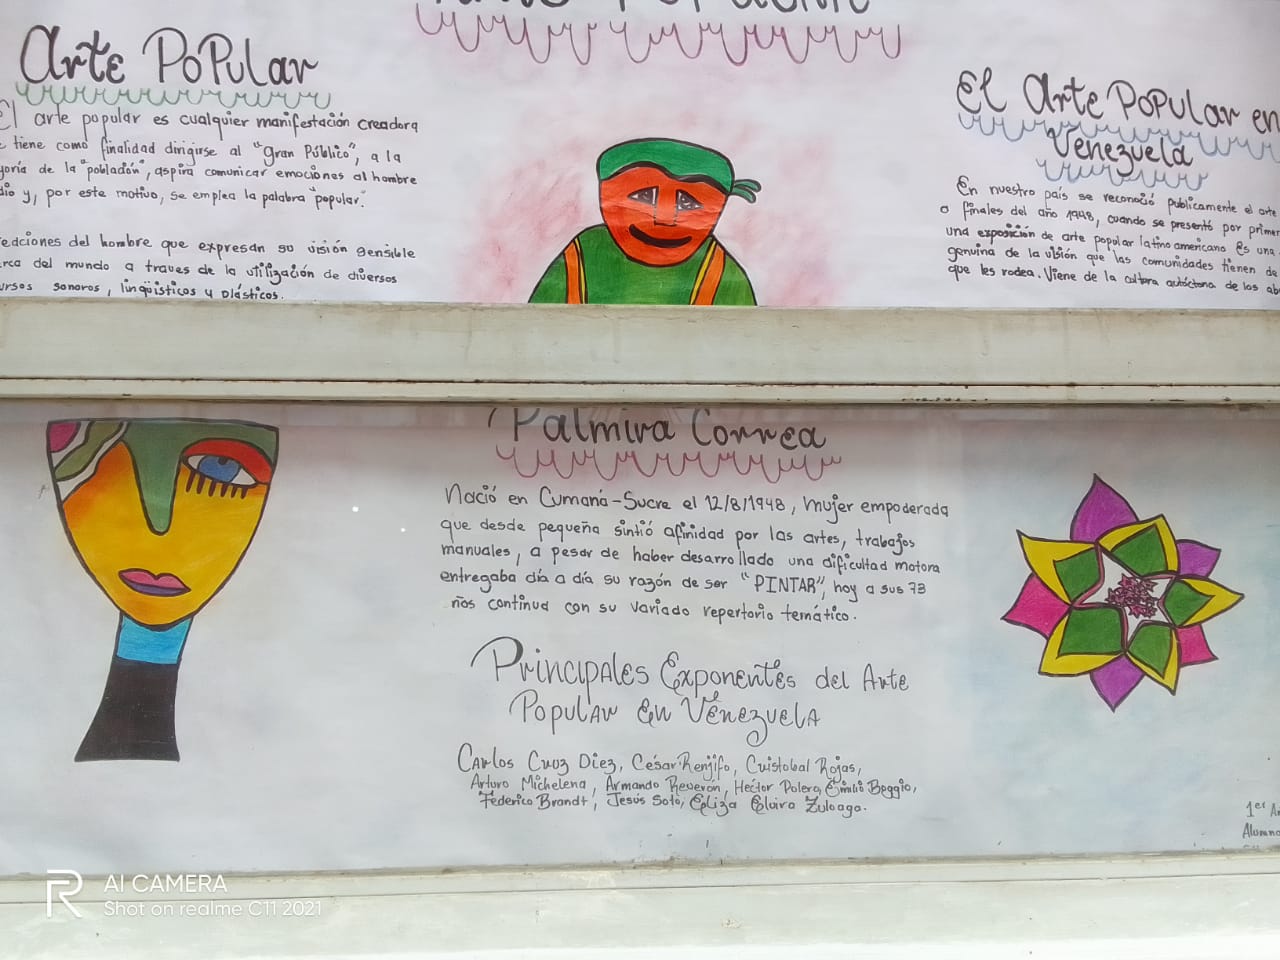 Arte Popular
El arte popular es cualquier manifestación creadora
tiene como finalidad dirigirse al "gran Público", a la
de la "población", aspira comunicar emociones al hombre
y, por este motivo, se emplea la palabra "popular."
del hombre que expresan su visión sensible
del mundo a traves de la utilización de diversos
sonoros, lingüisticos y plásticos.
El Arte Popular en
Venezuela
En nuestro país se reconoció publicamente el arte
a finales del año 1948, cuando se presentó por
una exposición de arte popular latinoamericano Es una
genuina de la visión que las comunidades tienen de
que les rodea. Viene de la cultura autóctona de los
Palmira Correa
Nació en Cumaná-Sucre el 12/8/1948, Mujer empoderada
que desde pequeña sintió afinidad por las artes, trabajos
manuales, a pesar de haber desarrollado una dificultad motora
entregaba día a día su razón de ser "PINTAR", hoy a sus 73
continua con su variado repertorio temático.
Principales Exponentes del Arte
Popular En Venezuela
Carlos Cruz Diez, César Renjifo, Cristobal Rojas,
Arturo Michelena, Armando Reverón, Hector Poleo, Emilio Boggio,
Federico Brandt, Jesús Soto, Eliza Elvira Zuloaga.
1er
AI CAMERA
Shot on realme C11 2021